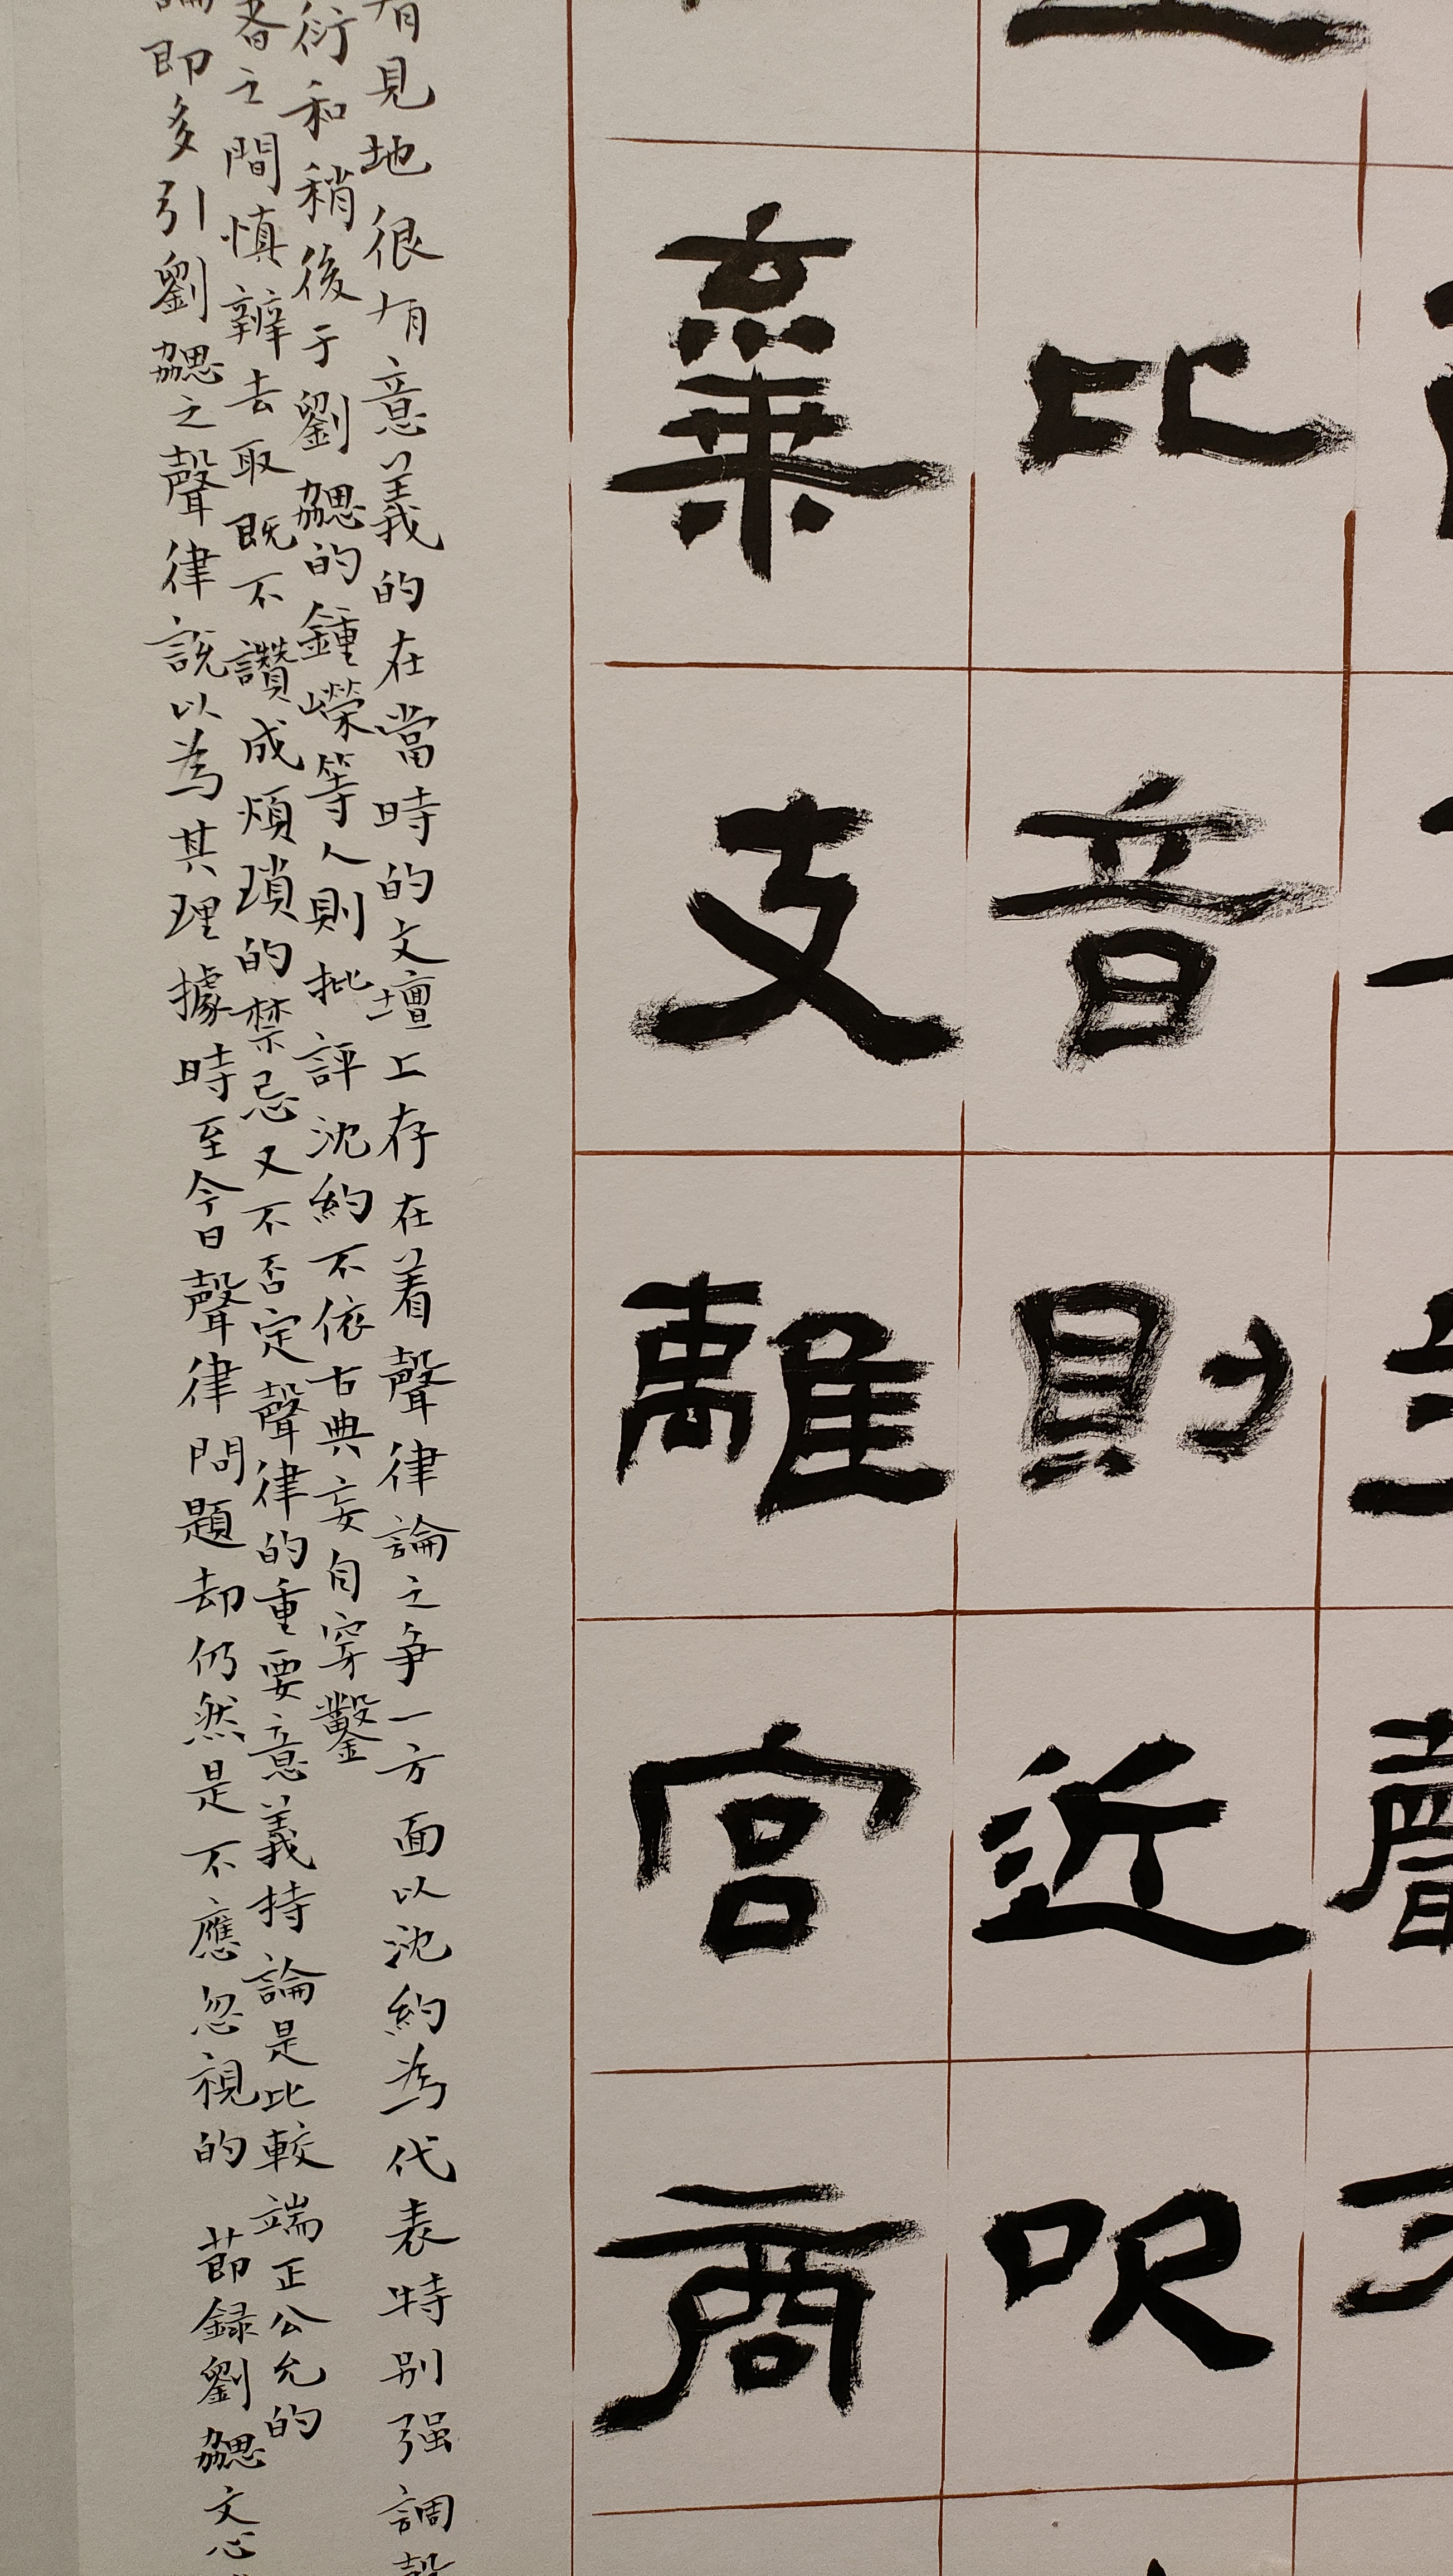 聲
比音則近吹
棄支離宮商
有見地很有意義的在當時的文壇上存在着聲律論之争一方面以沈約為代表特别强調聲
衍和稍後于劉勰的鍾嶸等人則批評沈約不依古典妄自穿鑿
者之間慎辨去取既不讚成煩瑣的禁忌又不否定聲律的重要意義持論是比較端正公允的
論即多引劉勰之聲律説以為其理據時至今日聲律問題却仍然是不應忽視的 節録劉勰文心